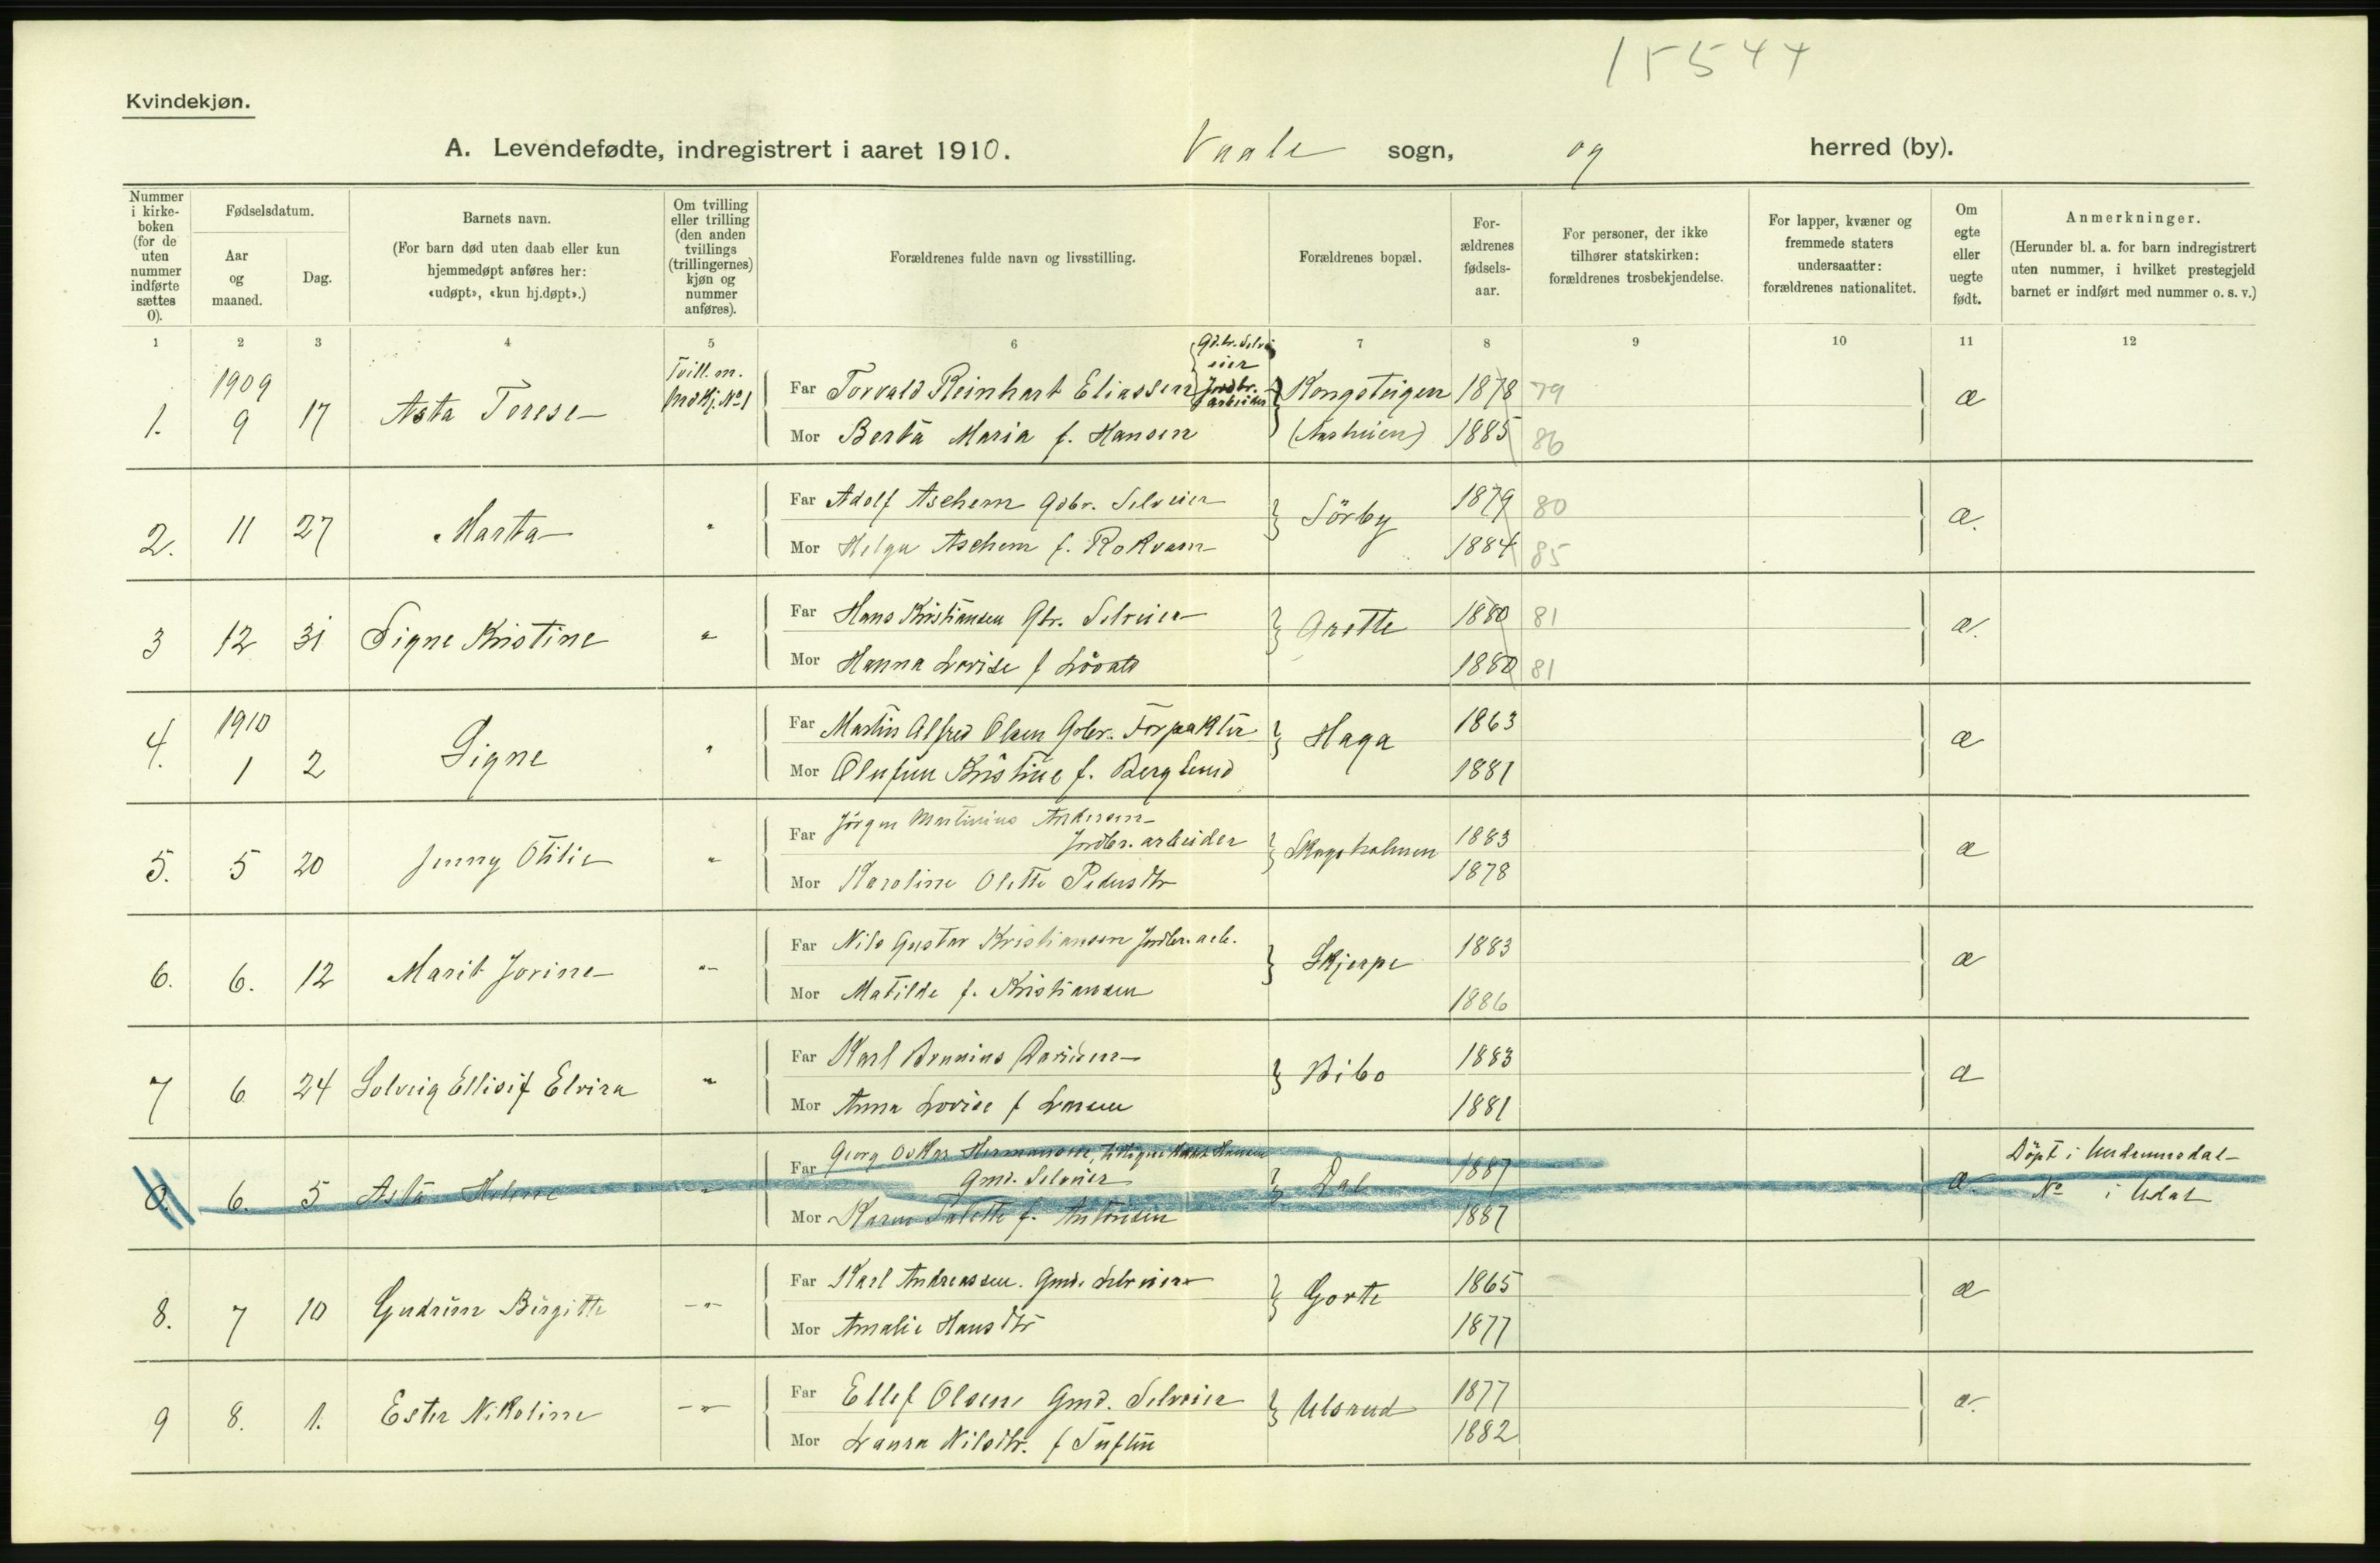 15544
Kvindekjøn.
A. Levendefødte, indregistrert i aaret 1910. Vaale sogn, og herred (by).
Nummer i kirke-boken (for de uten nummer indførte sættes 0).
Fødselsdatum.
Aar og maaned.
Dag.
Barnets navn.
(For barn død uten daab eller kun hjemmedøpt anføres her: «udøpt», «kun hj.døpt».)
Om tvilling eller trilling (den anden tvillings (trillingernes) kjøn og nummer anføres).
Forældrenes fulde navn og livsstilling.
Forældrenes bopæl.
For-ældrenes fødsels-aar.
For personer, der ikke tilhører statskirken: forældrenes trosbekjendelse.
For lapper, kvæner og fremmede staters undersaatter: forældrenes nationalitet.
Om egte eller uegte født.
Anmerkninger.
(Herunder bl. a. for barn indregistrert uten nummer, i hvilket prestegjeld barnet er indført med nummer o. s. v.)
1 2 3 4 5 6 7 8 9 10 11 12
1. 1909 9 17 Asta Terese Tvill. m. No 1
Far Torvald Reinhart Eliassen Gdbr. Selveier Jordbr. arbeider Kongsteigen 1878 79 æ
Mor Berta Maria f. Hansen 1885 86
2. 11 27 Marta "
Far Adolf Aschem Gdbr. Selveier Sörby 1879 80 æ.
Mor Helga Aschem f. Rokvam 1884 85
3 12 31 Signe Kristine "
Far Hans Kristiansen Gbr. Selveier Grette 1880 81 æ.
Mor Hanna Lovise f 1880 81
4. 1910 1 2 Signe "
Far Martin Alfred Olsen Gdbr. Forpakter Haga 1863 æ
Mor Olufine Kristine f. Berglund 1881
5. 5 20 Jenny Otilie "
Far Jörgen Martinius Andersen
Jordbr. arbeider Skogsholmen 1883 æ
Mor Karoline Olette Pedersdtr 1878
6. 6. 12 Marit Jorine "
Far Nils Gustav Kristiansen Jordbr. arb. Skjerpe 1883 æ
Mor Matilde f. Kristiansen 1886
7 6 24 Solveig Ellisif Elvira "
Far Karl Brunius Davidsen Bibo 1883 æ
Mor Anna Lovise f Larsen 1881
0. 6. 5 Asta Helene "
Far Georg Oskar Hermansen, Hansen
Gmd. Selveier Dal 1887 æ. Döpt i Undrumsdal
Mor Karen Talette f. Antonsen 1887 No i Udal
8. 7 10 Gudrun Birgitte "
Far Karl Andreassen. Gmd. Selveier Gorte 1865 æ
Mor Amalie Hansdtr 1877
9 8. 1. Ester Nikoline "
Far Ellef Olsen Gmd. Selveier Ulsrud 1877 æ.
Mor Laura Nilsdtr. f Tuftin 1882